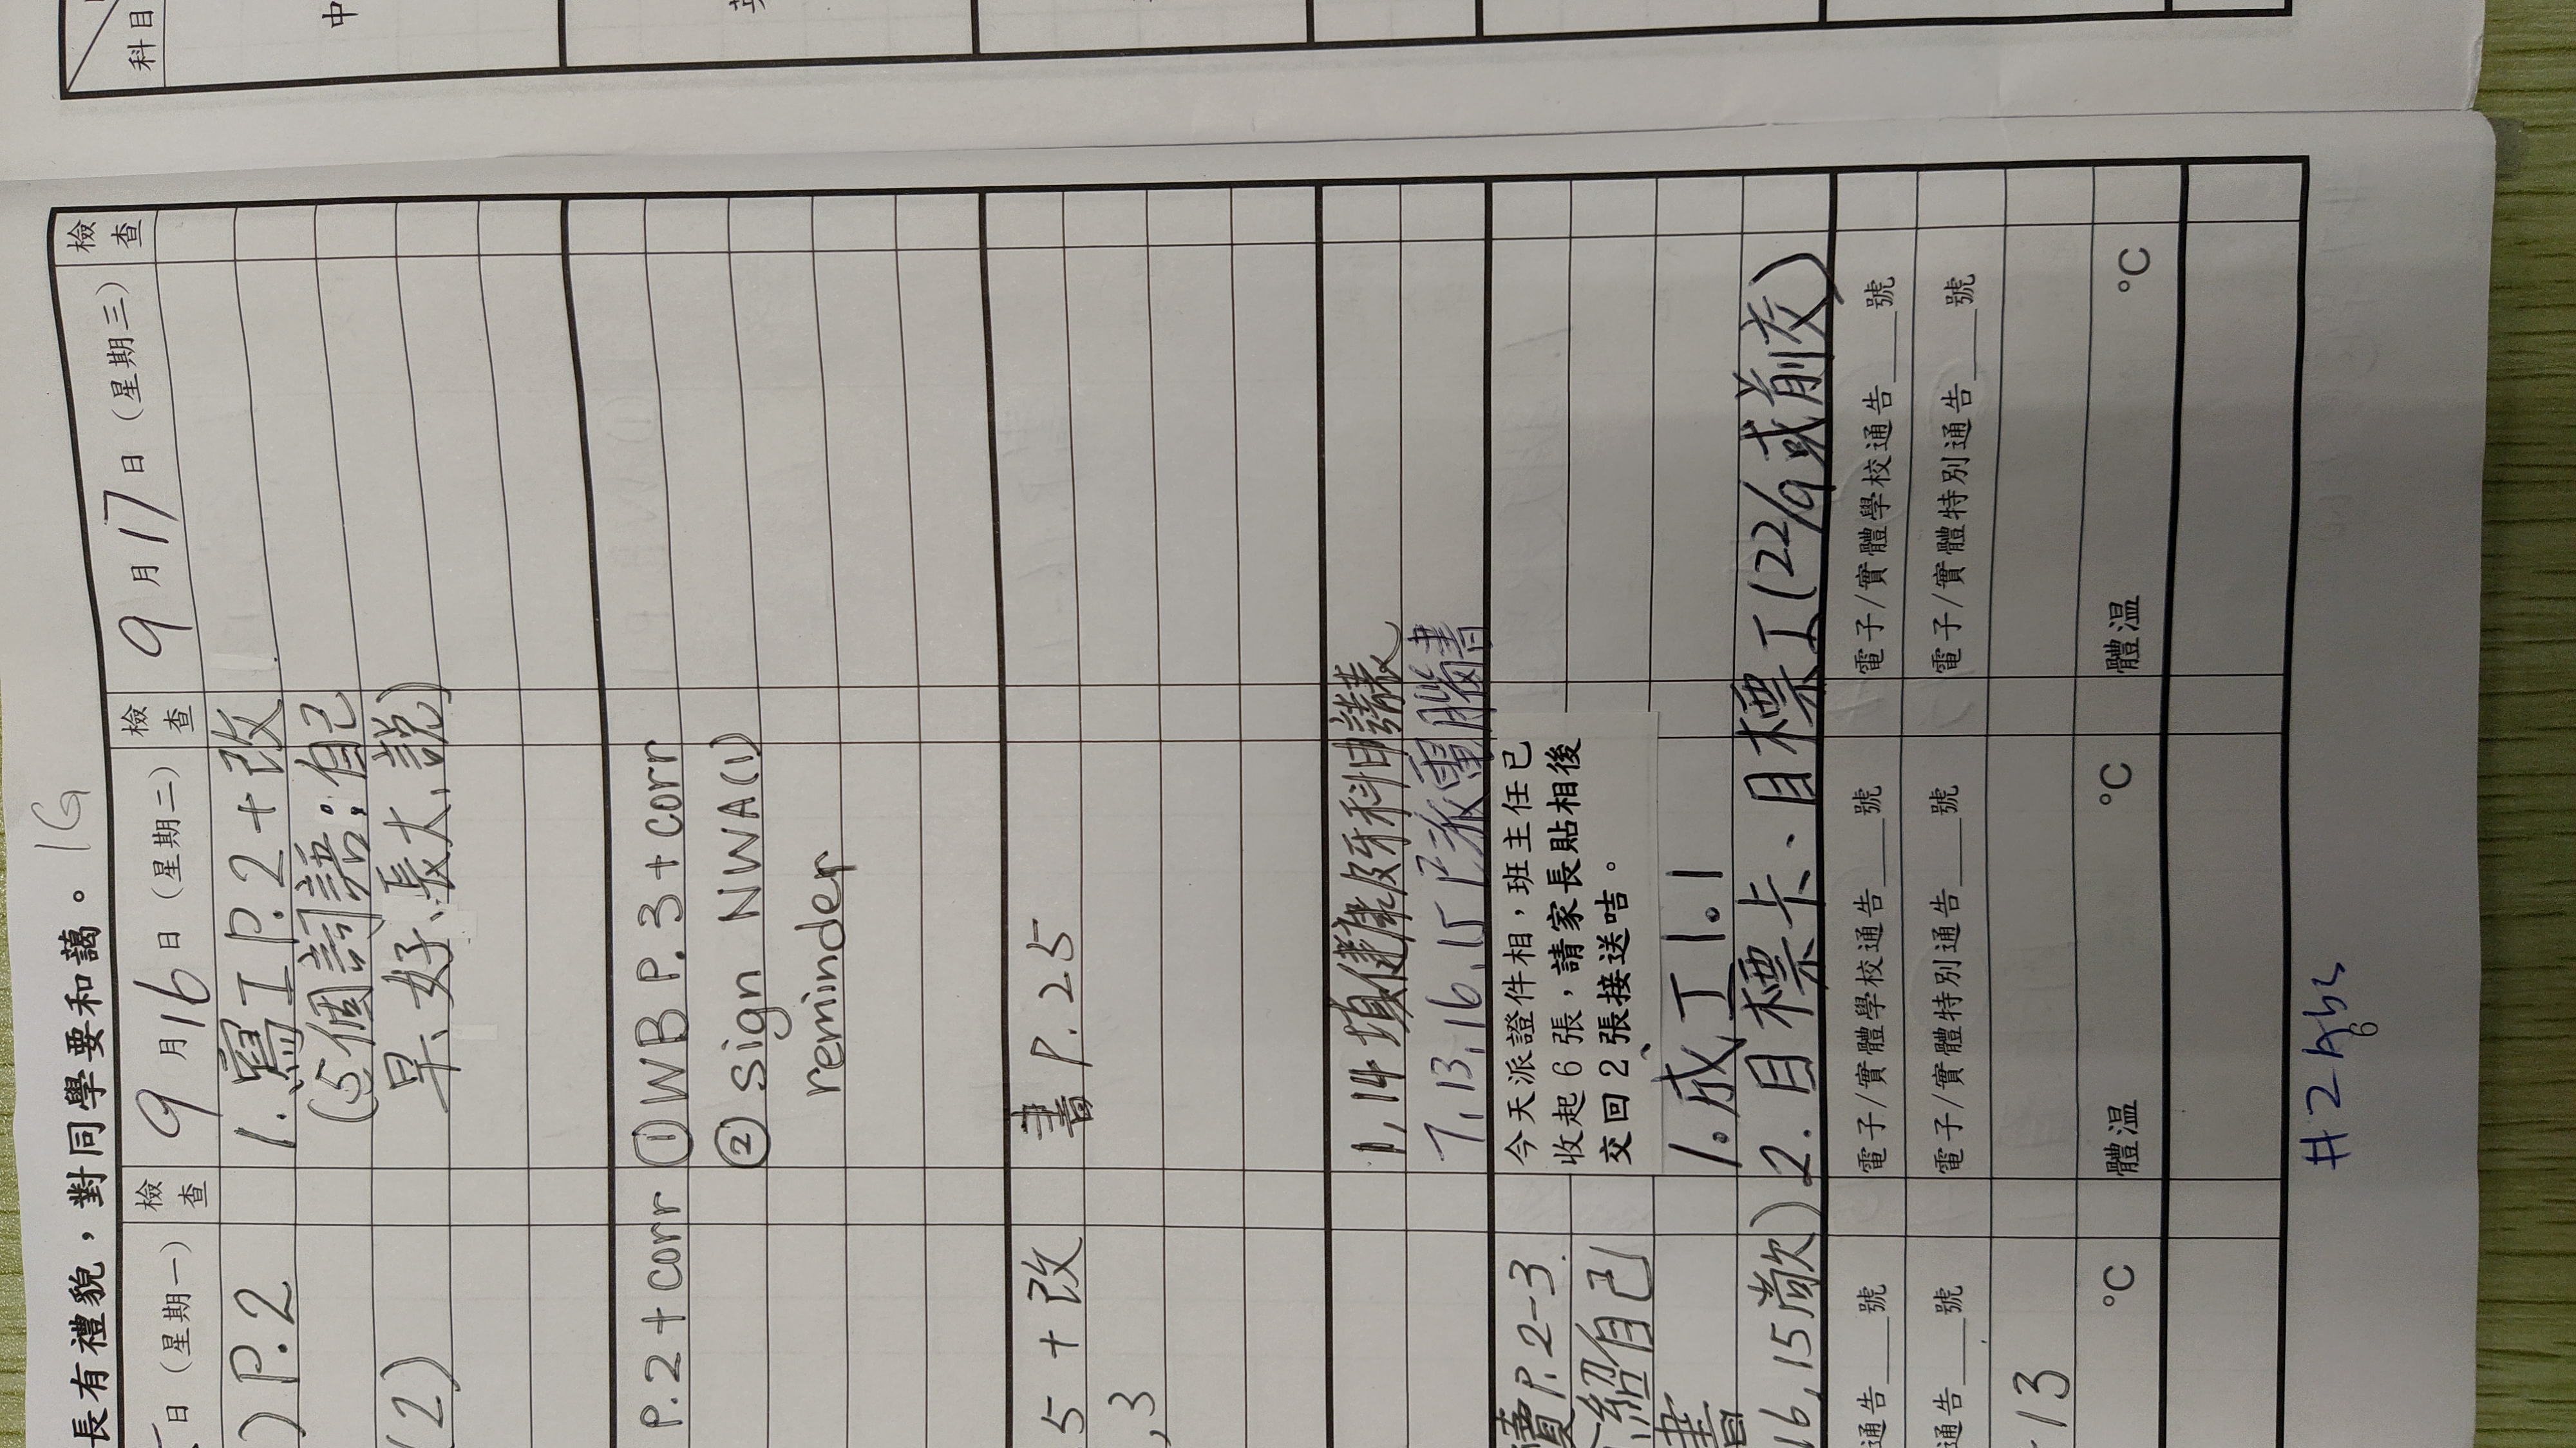 科目
中
長有禮貌，對同學要和藹。
1G
日（星期一）
檢查
9月16日（星期二）
檢查
9月17日（星期三）
檢查
)P.2
1. 寫工P.2+改
(5個詞語：自己
(2)
早、好、長大、說)
P.2+corr
①WB P.3+corr
②sign NWA(1)
reminder
5+改
書P.25
,3
1,14填健康及牙科申請表
7,13,16,15已派電腦書
讀P.2-3
今天派證件相，班主任已
收起6張，請家長貼相後
交回2張接送咭。
紹自己
1.成工1.1
書
16,15欠)
2.目標卡、目標工(22/9或前交)
通告___號
電子/實體學校通告___號
電子/實體學校通告___號
通告___號
電子/實體特別通告___號
電子/實體特別通告___號
13
°C
體温 °C
體温 °C